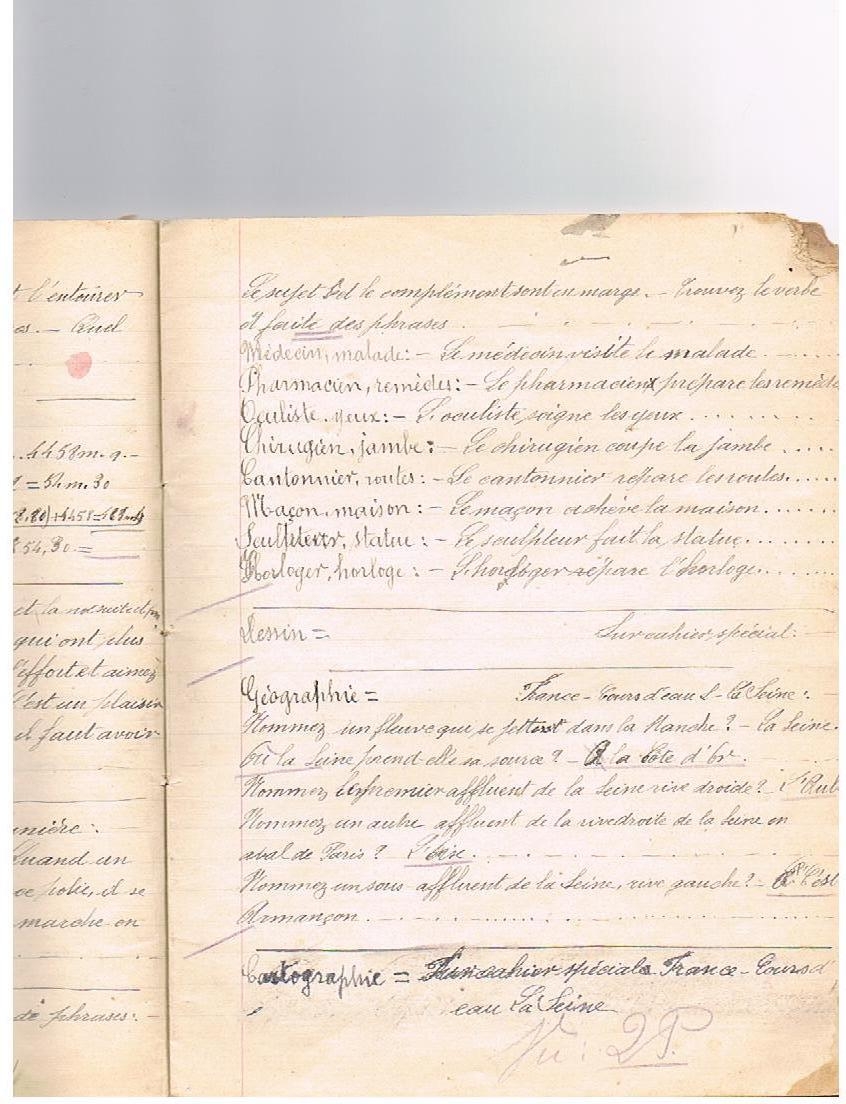 t l'entourer
os. — Quel
. 4458 m. q. —
= 54 m. 30
54,30 =
et la
qui ont plus
l'effort et aimez
C'est un plaisir
il faut avoir
nière :
Quand un
polie, il se
marche en
de phrases : —
Le sujet et le complément sont en marge. — Trouvez le verbe
et faite des phrases.
Médecin, malade : — Le médecin visite le malade.
Pharmacien, remèdes : — Le pharmacien prépare les remède
Oculiste, yeux : — L'oculiste soigne les yeux.
Chirugien, jambe : — Le chirugien coupe la jambe
Cantonnier, routes : — Le cantonnier répare les routes.
Maçon, maison : — Le maçon achève la maison.
Sculpteur, statue : — Le sculpteur fait la statue.
Horloger, horloge : — L'horloger répare l'horloge.
Dessin = Sur cahier spécial : —
Géographie = France — Cours d'eau — La Seine : —
Nommez un fleuve qui se jette dans la Manche ? — La Seine.
Où la Seine prend elle sa source ? — A la Côte d'Or.
Nommez le premier affluent de la Seine rive droide ? L'Aub
Nommez un autre affluent de la rive droite de la Seine en
aval de Paris ? L'Oise
Nommez un sous affluent de la Seine, rive gauche ? — C'est
Armançon.
Cartographie = Sur cahier spécial France — Cours d'
eau La Seine
Vu :